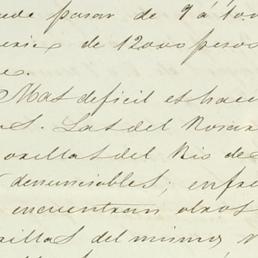 uede pasar de 9 á 100
de 12000 pesos
e.
Mas dificil es hace
as. Las del Rosar
orillas del Rio de
denunciables; enfre
encuentran otros
rillas del mismo